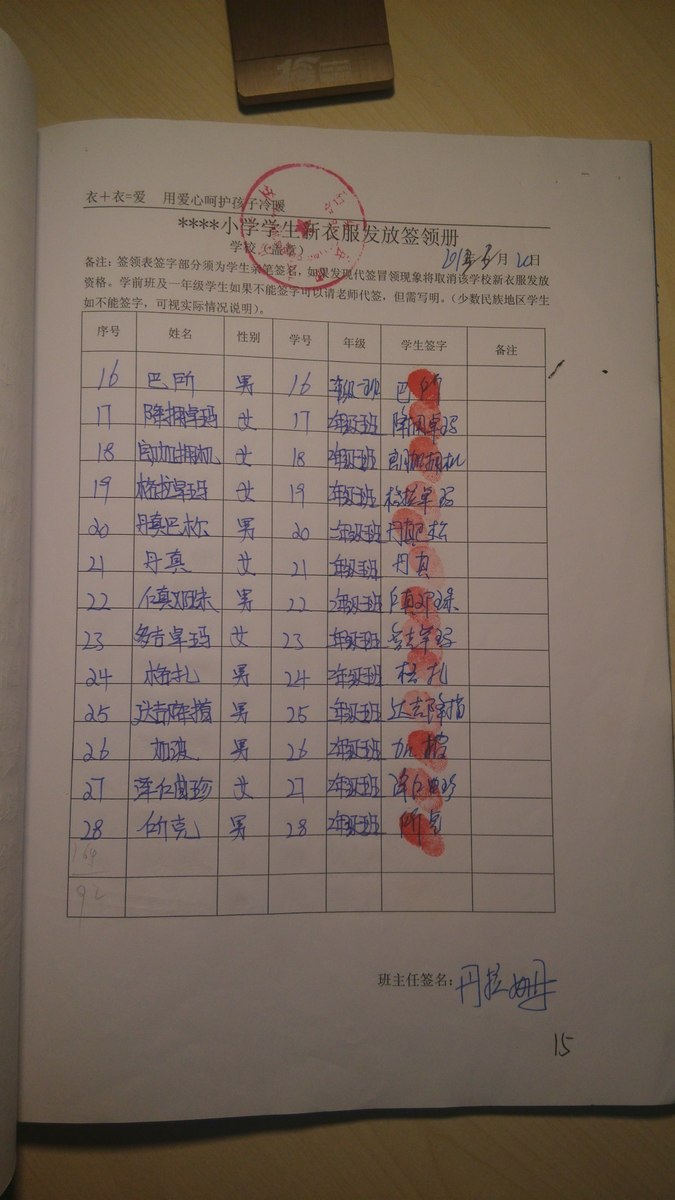 衣+衣=爱 用爱心呵护孩子冷暖
****小学学生新衣服发放签领册
学校（盖章） 月 20日
备注：签领表签字部分须为学生亲笔签名，如果发现代签冒领现象将取消该学校新衣服发放
资格。学前班及一年级学生如果不能签字可以请老师代签，但需写明。（少数民族地区学生
如不能签字，可视实际情况说明）。
序号 姓名 性别 学号 年级 学生签字 备注
16 巴所 男 16 巴所
17 降拥卓玛 女 17 2年级1班 降拥卓玛
18 郎加拥机 女 18 2年级1班 郎加拥机
19 格拉卓玛 女 19 2年级1班 格拉卓玛
20 丹真巴松 男 20 2年级1班 丹真巴松
21 丹真 女 21 2年级1班 丹真
22 仁真邓珠 男 22 2年级1班 仁真邓珠
23 多吉卓玛 女 23 2年级1班 多吉卓玛
24 格扎 男 24 2年级1班 格扎
25 达吉降措 男 25 2年级1班 达吉降措
26 加波 男 26 2年级1班
27 泽仁 女 27 2年级1班 泽仁
28 男 28 2年级1班
164
92
班主任签名：丹拉姆
15